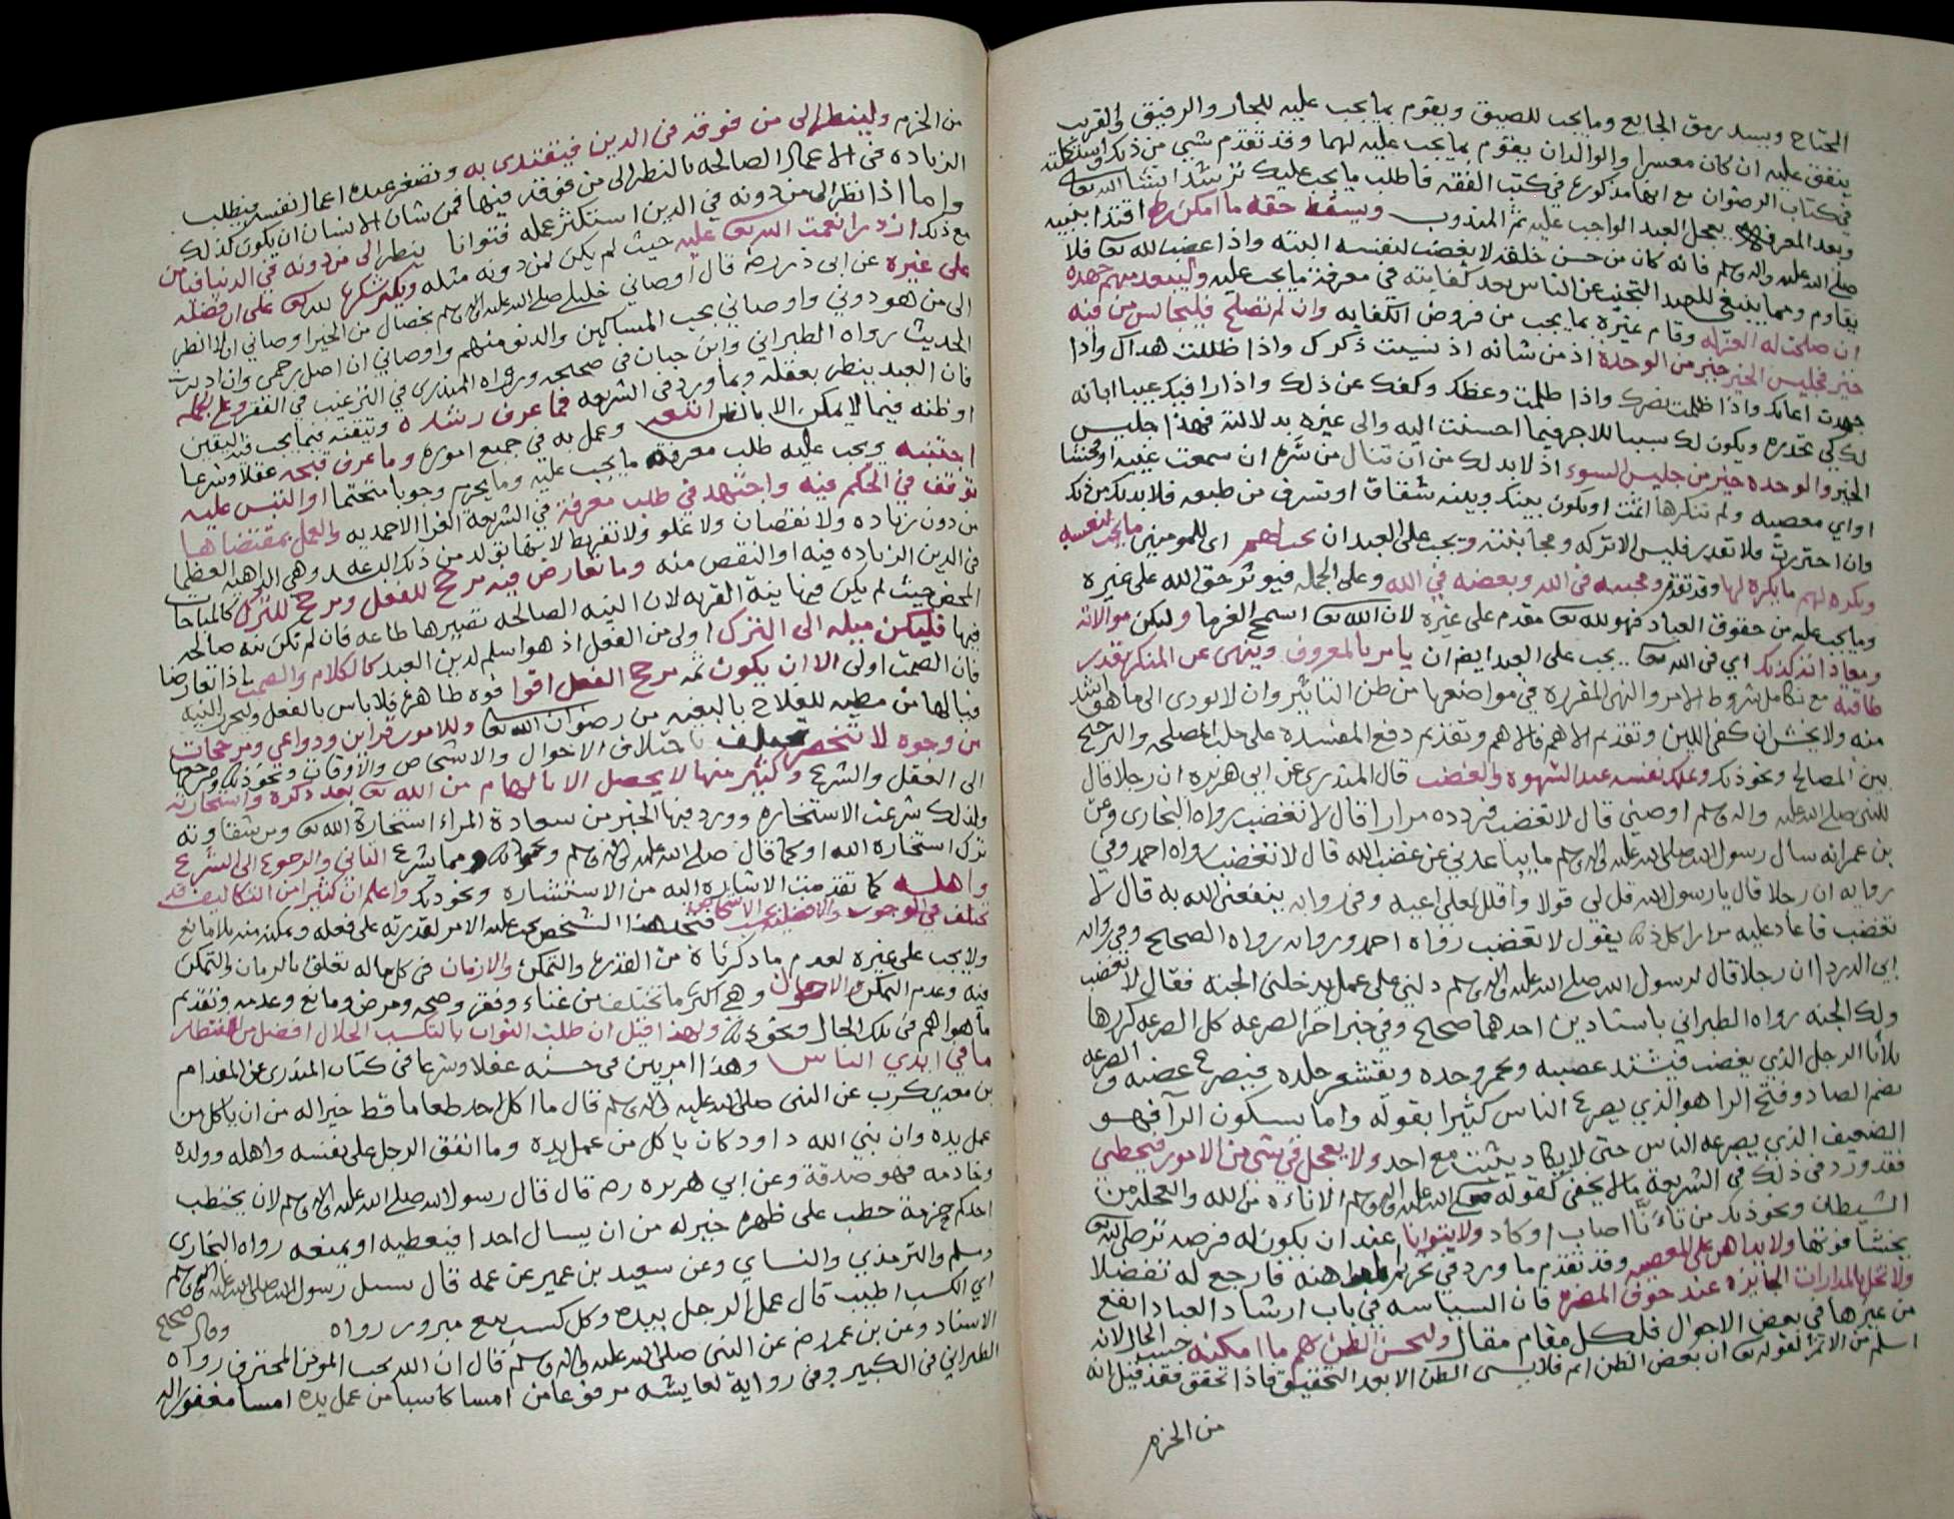 المحتاج ويسد رمق الجايع وما يجب للضيق ويقوم بما يجب عليه للجار والرفيق والقريب
ينفق عليه ان كان معسرا والوالدان يقوم بما يجب عليه لهما وقد تقدم شيء من ذكر
في كتاب الرضوان مع انها مذكورة في كتب الفقه فاطلب ما يجب عليك ترشد انشا الله تعا
وبعد المعرفه يعمل العبد الواجب عليه ثم المندوب ويسقط حقه ما امكن اقتدا بنبيه
صلى الله عليه واله وسلم فانه كان من حسن خلقه لا يغضب لنفسه البته واذا غضب لله تعا فلا
يقاوم ومما ينبغي للعبد التجنب عن الناس بعد كفايته في معرفة ما يجب عليه وليبعد منهم جهده
ان صلحت له العزله وقام غيره بما يجب من فروض الكفايه وان لم تصلح فليجالس من فيه
خير فجليس الخير خير من الوحدة اذ من شانه اذ نسيت ذكرك واذا ظللت هداك واذا
جهدت اعانك واذا ظلمت نصرك واذا ظلمت وعظك وكفك عن ذلك واذا را فيك عيبا ابانه
لك كي تحذره ويكون لك سببا للاجر فيما احسنت اليه والى غيره بدلالته فهذا جليس
الخير والوحده خير من جليس السوء اذ لا بد لك من ان تنال من شره ان سمعت غيبه او فحشا
او اي معصيه ولم تنكرها اثمت او يكون بينك وبينه شقاق او تسرق من طبعه فلا بد لك من ذلك
وان احترزت فلا تقدر فليس الا تركه ومجانبته ويجب على العبد ان يحب لهم اي للمومنين ما يحب لنفسه
ويكره لهم ما يكره لها وقد تقدم ومحبته في الله وبغضه في الله وعلى الجمله فيوثر حق الله على غيره
وما يجب عليه من حقوق العباد فهو لله تعا مقدم على غيره لان الله تعا اسمح الغرما وليكن موالاته
ومعاداته كذلك اي في الله تعا يجب على العبد ايضا ان يامر بالمعروف وينهى عن المنكر بقدر
طاقته مع تكامل شروط الامر والنهي المقرره في مواضعها من ظن التاثير وان لا يودي الى ما هو اشد
منه ولا يخش ان كفي الدين وتقديم الاهم فالاهم وتقديم دفع المفسدة على جلب المصلحه والترجيح
بين المصالح ونحو ذلك ويملك نفسه عند الشهوة والغضب قال المنذري عن ابي هريره ان رجلا قال
للنبي صلى الله عليه واله وسلم اوصني قال لا تغضب فردده مرارا قال لا تغضب رواه البخاري وعن
بن عمر انه سال رسول الله صلى الله عليه واله وسلم ما يباعدني عن غضب الله قال لا تغضب رواه احمد وفي
رواية ان رجلا قال يا رسول الله قل لي قولا واقلل لعلي اعيه وفي رواية ينفعني الله به قال لا
تغضب فاعاد عليه مرارا كل ذلك يقول لا تغضب رواه احمد ورواته رواه الصحيح وفي رواية
ابي الدرداء ان رجلا قال لرسول الله صلى الله عليه واله وسلم دلني على عمل يدخلني الجنه فقال لا تغضب
ولك الجنه رواه الطبراني باسنادين احدهما صحيح وفي خبر اخر الصرعه كل الصرعه كررها
ثلاثا الرجل الذي يغضب فيشتد غضبه ويحمر وجهه ويقشعر جلده فيصرع غضبه والصرعه
بضم الصاد وفتح الرا هو الذي يصرع الناس كثيرا بقوته واما بسكون الرا فهو
الضعيف الذي يصرعه الناس حتى لا يكاد يثبت مع احد ولا يعجل في شي من الامور فيخطي
فقد ورد في ذلك في الشريعة ما لا يخفى كقوله صلى الله عليه واله وسلم الاناءه من الله والعجله من
الشيطان ونحو ذلك من تاءنا اصاب او كاد ولا يتوانا عند ان يكون له فرصه ترضي الله تعا
يخشا فوتها ولا يداهن على المعصيه وقد تقدم ما ورد في تحريم المداهنه فارجع له تفضلا
ولا تخل بالمدارات الجايزه عند خوف المضره فان السياسه في باب ارشاد العباد انفع
من غيرها في بعض الاحوال فلكل مقام مقال وليحسن الظن بهم ما امكنه حسب الحال لانه
اسلم من الاثم لقوله تعا ان بعض الظن اثم فلا يسى الظن الا بعد التحقيق فاذا تحقق فقد قيل انه
من الحزم
من الحزم ولينظر الى من فوقه في الدين فيقتدي به وتصغر عنده اعمال نفسه فيطلب
الزياده في الاعمال الصالحه بالنظر الى من فوقه فيها فمن شان الانسان ان يكون كذلك
واما اذا نظر الى من دونه في الدين استكثر عمله فتوانا ينظر الى من دونه في الدنيا فيامن
مع ذلك ازدرا نعمت الله تعا عليه حيث لم يكن لمن دونه مثله ويكثر شكره لله تعا على ان فضله
على غيره عن ابي ذر رضه قال اوصاني خليلي صلى الله عليه واله وسلم بخصال من الخير اوصاني ان لا انظر
الى من هو دوني واوصاني بحب المساكين والدنو منهم واوصاني ان اصل رحمي وان ادبرت
الحديث رواه الطبراني وابن حبان في صحيحه ورواه المنذري في الترغيب في الفقر وعلى الجمله
فان العبد ينظر بعقله وبما ورد في الشريعه فما عرف رشده وتيقنه فيما يجب فيه اليقين
او ظنه فيما لا يمكن الا بالظن اتبعه وعمل به في جميع اموره وما عرف قبحه عقلا وشرعا
اجتنبه ويجب عليه طلب معرفة ما يجب عليه وما يحرم وجوبا متحتما او التبس عليه
توقف في الحكم فيه واجتهد في طلب معرفته في الشريعة الغرا الاحمديه والعمل بمقتضاها
من دون زياده ولا نقصان ولا غلو ولا تفريط لانها تولد من ذلك البدعه وهي الداهيه العظما
في الدين الزياده فيه او النقص منه وما تعارض فيه مرجح للفعل ومرجح للترك كالمباحات
المحض حيث لم يكن فيها نية القربه لان النيه الصالحه تصيرها طاعه فان لم تكن نيه صالحه
فيها فليكن ميله الى الترك اولى من الفعل اذ هو اسلم لدين العبد كالكلام والصمت اذا تعارضا
فان الصمت اولى الا ان يكون ثم مرجح الفعل اقوا قوه ظاهره فلا باس بالفعل وليحرر النيه
فيا لها من مطيه للفلاح بالبغيه من رضوان الله تعا وللامور قراين ودواعي ومرجحات
من وجوه لا تنحصر تختلف باختلاف الاحوال والاشخاص والاوقات ونحو ذلك ومرجعها
الى العقل والشرع وكثير منها لا يحصل الا بالهام من الله تعا بعد ذكره واستخارته
ولذلك شرعت الاستخاره وورد فيها الخبر من سعادة المراء استخارة الله تعا ومن شقاوته
ترك استخارة الله او كما قال صلى الله عليه واله وسلم ونحو ذلك ومما يشرع التاني والرجوع الى الشرع
واهله كما تقدمت الاشاره اليه من الاستشاره ونحو ذلك واعلم ان كثيرا من التكاليف قد
تختلف في الوجوب والافضليه بحسب الاشخاص فتجد هذا الشخص يجب عليه الامر لقدرته على فعله وتمكنه منه بلا مانع
ولا يجب على غيره لعدم ما ذكرناه من القدرة والتمكن والازمان في كل ما له تعلق بالزمان والتمكن
فيه وعدم التمكن والاحوال وهي اكثر ما تختلف من غناء وفقر وصحه ومرض ومانع وعدمه وتقديم
ما هو اهم في تلك الحال ونحو ذلك ولهذا قيل ان طلب الثواب بالتكسب الحلال افضل من انتظار
ما في ايدي الناس وهذا امر بين في حسنه عقلا وشرعا في كتاب المنذري عن المقدام
بن معدي كرب عن النبي صلى الله عليه واله وسلم قال ما اكل احد طعاما قط خيرا له من ان ياكل من
عمل يده وان نبي الله داود كان ياكل من عمل يده وما انفق الرجل على نفسه واهله وولده
وخادمه فهو صدقة وعن ابي هريره رضه قال قال رسول الله صلى الله عليه واله وسلم لان يحتطب
احدكم حزمة حطب على ظهره خير له من ان يسال احدا فيعطيه او يمنعه رواه البخاري
ومسلم والترمذي والنساي وعن سعيد بن عمير عن عمه قال سيل رسول الله صلى الله عليه واله وسلم
اي الكسب اطيب قال عمل الرجل بيده وكل كسب بيع مبرور رواه وقال صحيح
الاسناد وعن بن عمر رض عن النبي صلى الله عليه واله وسلم قال ان الله يحب المومن المحترف رواه
الطبراني في الكبير وفي رواية لعايشه مرفوعا من امسا كاسبا من عمل يده امسا مغفور له